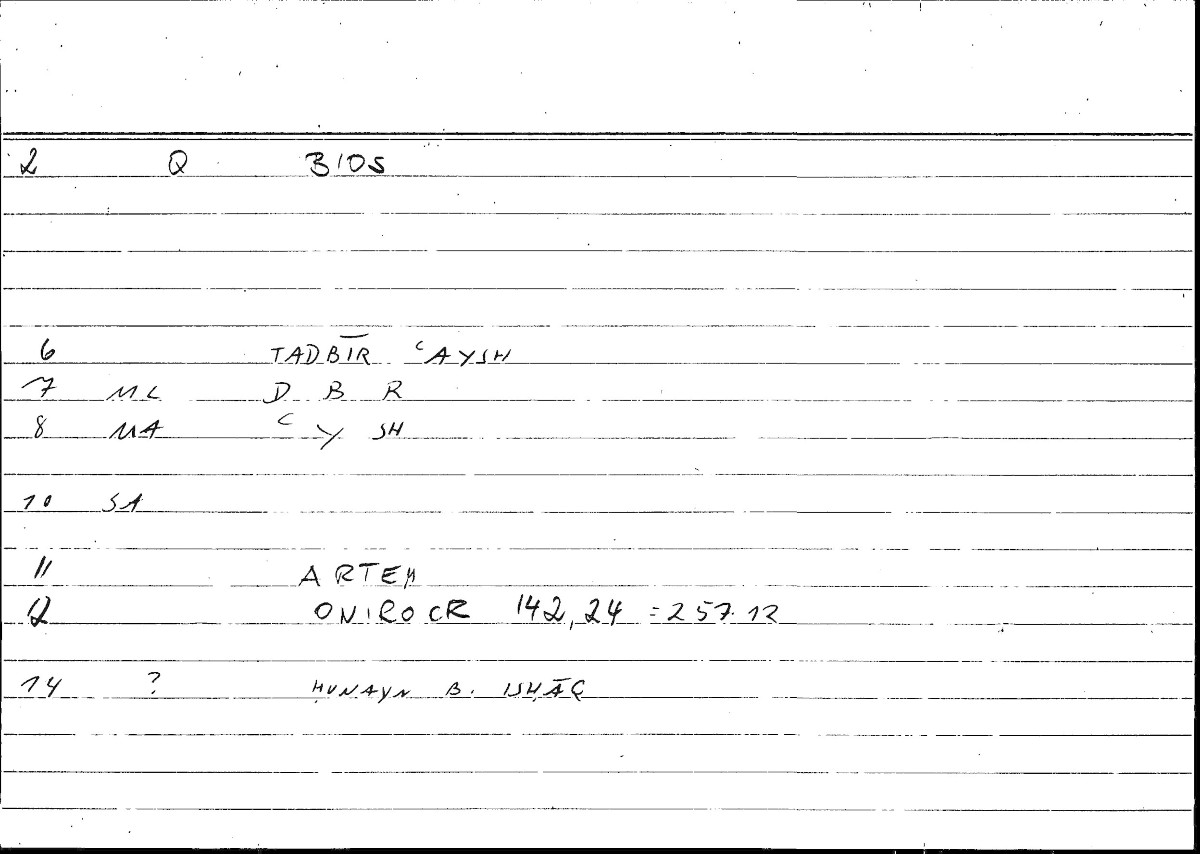 2 Q BIOS
6 TADBĪR ʿAYSH
7 ML D B R
8 MA ʿ Y SH
10 SA
11 ARTEM
12 ONIROCR 142,24 = 257.12
14 ? ḤUNAYN B. ISḤĀQ